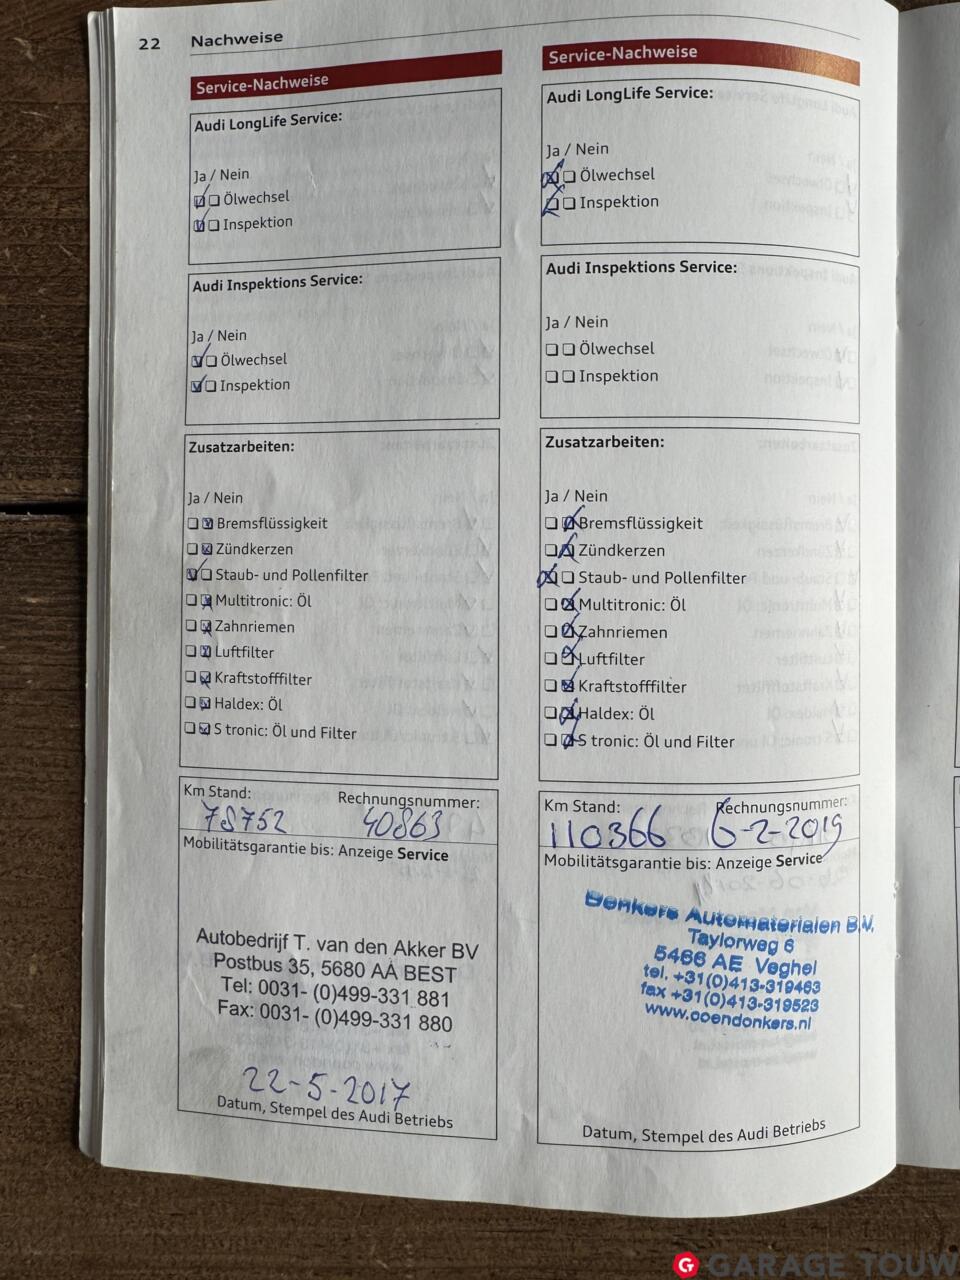 22 Nachweise
Service-Nachweise
Audi LongLife Service:
Ja / Nein
Ölwechsel
Inspektion
Audi Inspektions Service:
Ja / Nein
Ölwechsel
Inspektion
Zusatzarbeiten:
Ja / Nein
Bremsflüssigkeit
Zündkerzen
Staub- und Pollenfilter
Multitronic: Öl
Zahnriemen
Luftfilter
Kraftstofffilter
Haldex: Öl
S tronic: Öl und Filter
Km Stand: Rechnungsnummer:
78752 40863
Mobilitätsgarantie bis: Anzeige Service
Autobedrijf T. van den Akker BV
Postbus 35, 5680 AA BEST
Tel: 0031- (0)499-331 881
Fax: 0031- (0)499-331 880
22-5-2017
Datum, Stempel des Audi Betriebs
Service-Nachweise
Audi LongLife Service:
Ja / Nein
Ölwechsel
Inspektion
Audi Inspektions Service:
Ja / Nein
Ölwechsel
Inspektion
Zusatzarbeiten:
Ja / Nein
Bremsflüssigkeit
Zündkerzen
Staub- und Pollenfilter
Multitronic: Öl
Zahnriemen
Luftfilter
Kraftstofffilter
Haldex: Öl
S tronic: Öl und Filter
Km Stand: Rechnungsnummer:
110366 6-2-2019
Mobilitätsgarantie bis: Anzeige Service
Donkers Automaterialen B.V.
Taylorweg 6
5466 AE Veghel
tel. +31(0)413-319463
fax +31(0)413-319523
www.coendonkers.nl
Datum, Stempel des Audi Betriebs
GARAGE TOUW